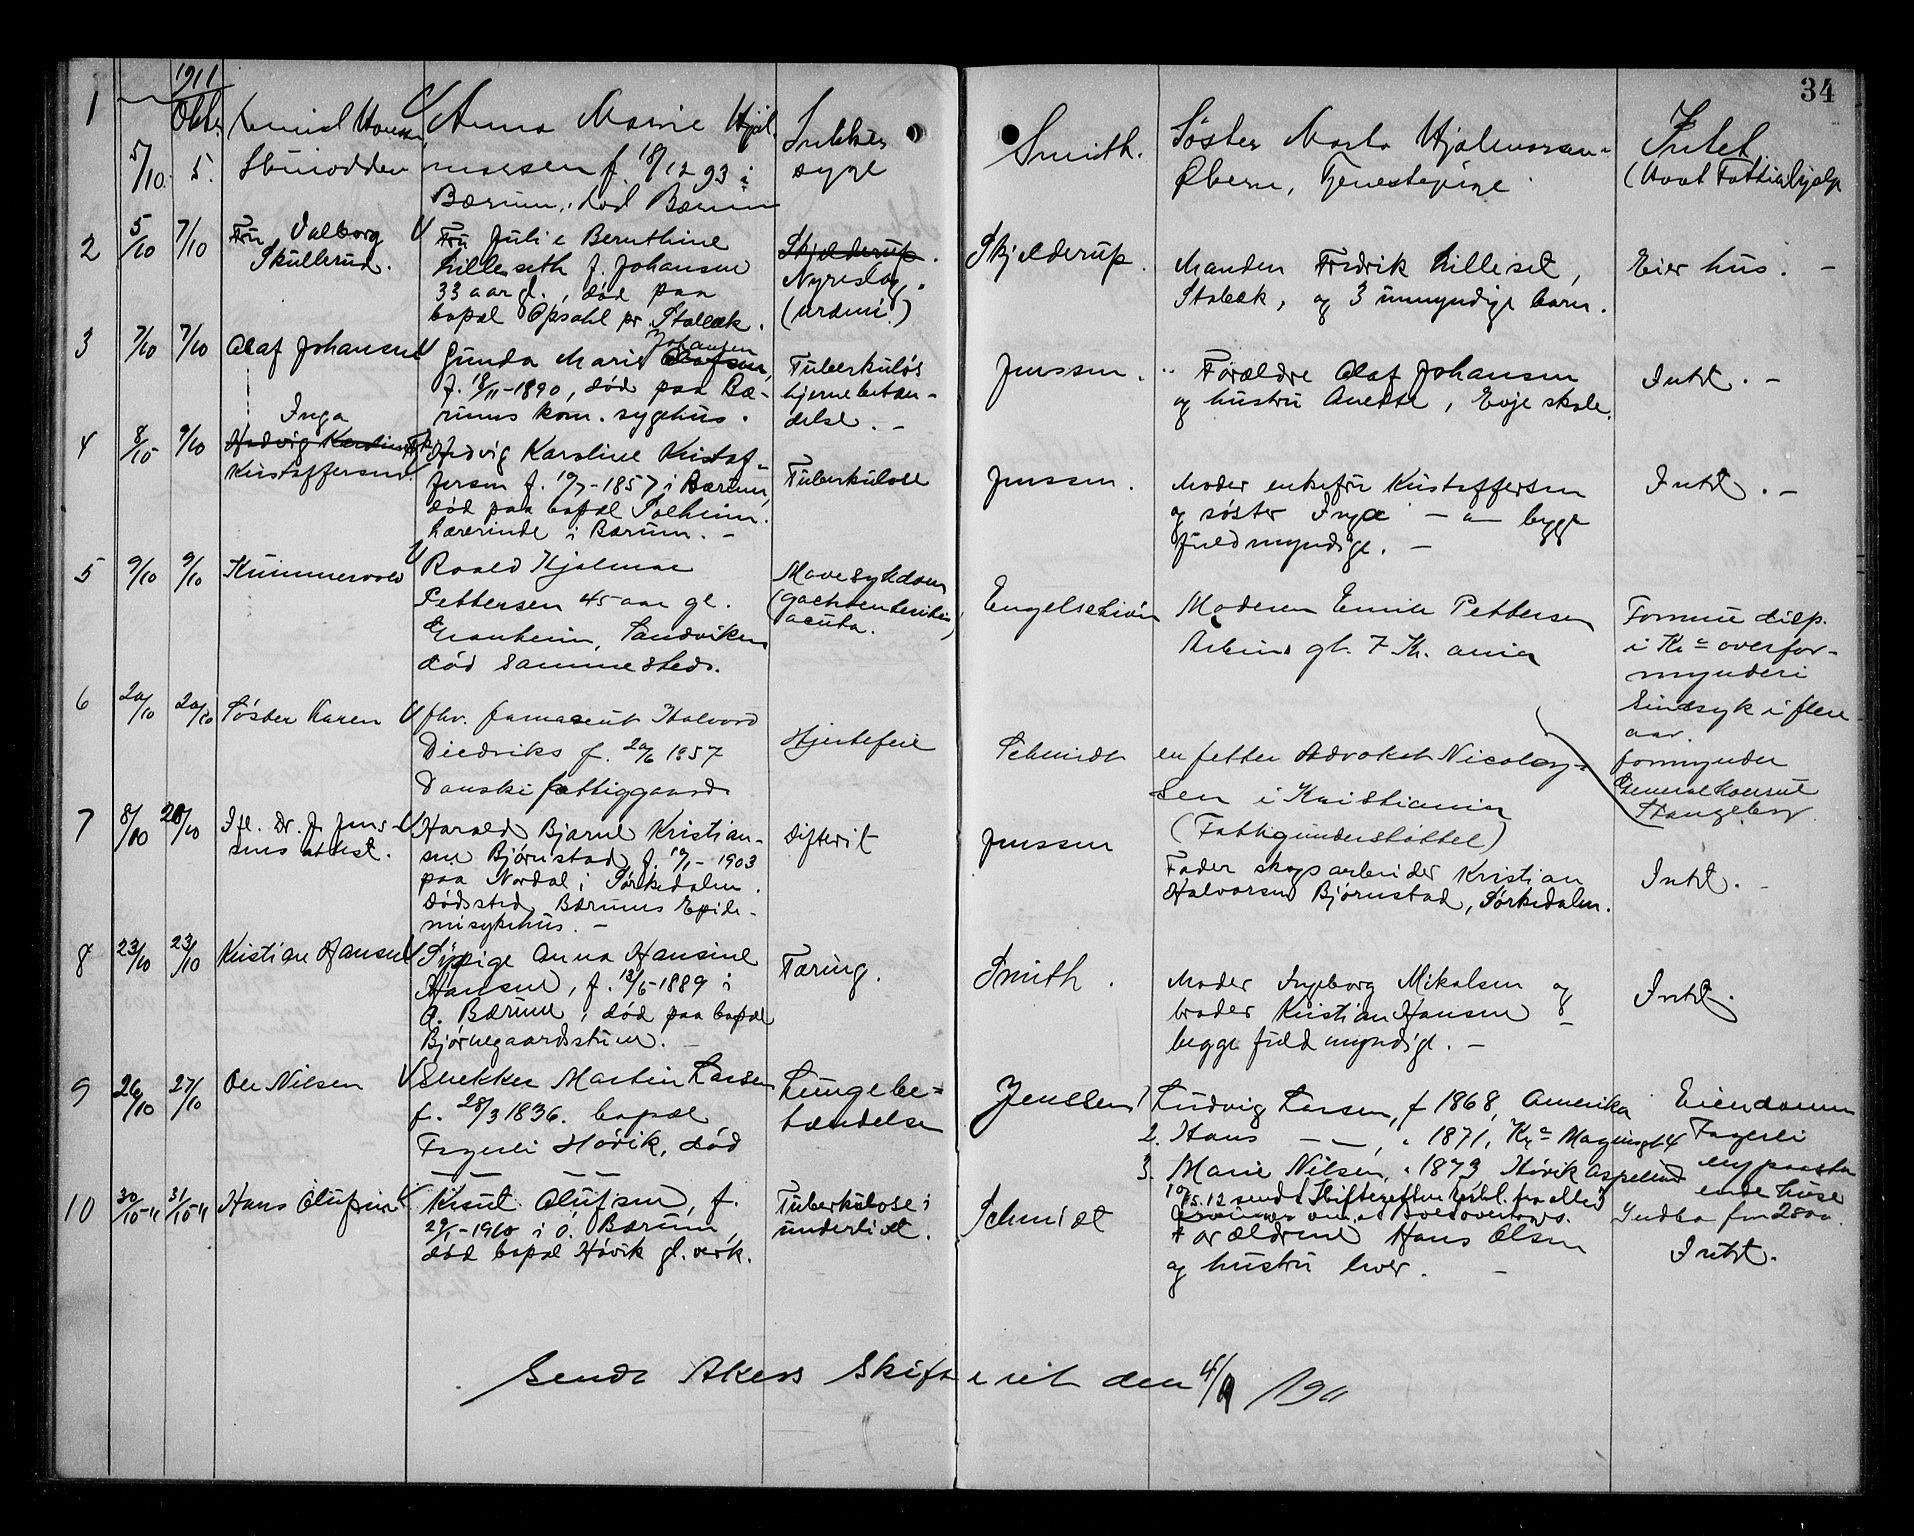 34
1911
1 5/10 Oktr. 5. Stuiodden
Anna Marie Hjal-
marsen f. 18/12 93 i
Bærum, død Bærum
Sukker
syge
Smith.
Søster Marta Hjalmarsen
Øbern, Tjenestepige
Intet
(Havt Fattighjelp
2 5/10 7/10 Fru Valborg
Skullerud.
Fru Julie Bernthine
Lilleseth f. Johansen
33 aar gl., død paa
bopæl Opsahl pr. Stabæk.
Skjelderup.
Nyreslag.
(Uræmi.)
Skjelderup.
Manden Fredrik Lilleset,
Stabæk, og 3 umyndige barn.
Eier hus. -
3 7/10 7/10 Olaf Johansen
Johansen
Gunda Marie Olafsen,
f. 18/11-1890, død paa Bæ-
rums kom. sygehus.
Tuberkuløs
hjernebetæn-
delse. -
Jenssen.
Forældre Olaf Johansen
og hustru Anette, Evje skole.
Intet. -
4 8/10 9/10 Inga
Hedvig Karoline
Kristoffersen
Frk. Hedvig Karoline Kristof-
fersen f. 10/7-1857 i Bærum,
død paa bopæl Solheim.
Lærerinde i Bærum. -
Tuberkulose
Jenssen.
Moder enkefru Kristoffersen
og søster Inga - " - begge
fuldmyndige. -
Intet. -
5 9/10 9/10 Kummervold
Roald Hjalmar
Pettersen 45 aar gl.
Granheim, Sandviken
død sammesteds.
Mavesykdom
(gastroenteritis
acuta.)
Engelschiøn
Moderen Emilie Pettersen
gt. 7 Kr.ania
Formue disp.
i Kra overfor-
mynderi
Sindsyk i flere
aar.
formynder
Generalkonsul
6 20/10 20/10 Søster Karen
fhv. farmaceut Halvord
Diedriks f. 20/6 1857
Danski fattiggaard
Hjertefeil
Schmidt
en fetter Advokat Nicolay-
sen i Kristiania
(Fattigunderstøttet)
7 8/10 20/10 Ifl. Dr. J. Jens-
sens attest.
Harald Bjarne Kristian-
sen Bjørnstad f. 10/1-1903
paa Nordal i Sørkedalen.
Dødssted Bærums Epide-
misykehus. -
Difterit
Jenssen
Fader skogsarbeider Kristian
Halvorsen Bjørnstad, Sørkedalen.
Intet. -
8 23/10 23/10 Kristian Hansen
Sypige Anna Hansine
Hansen, f. 13/6-1889 i
Ø. Bærum, død paa bopæl
Bjørnegaardsstuen. -
Tæring.
Smith.
Moder Ingeborg Mikalsen og
broder Kristian Hansen
begge fuldmyndige. -
Intet.
9 26/10 27/10 Ole Nilsen
Snekker Martin Larsen
f. 28/3 1836. bopæl
Fagerli Høvik, død
Lungebe-
tændelse
Jenssen
1 Ludvig Larsen, f 1868, Amerika
2. Hans — — , " 1871, Kra
3. Marie Nilsen, " 1873 Høvik Aspelund
Eiendommen
Fagerli
med paasta
ende huse
Indbo for 2800.
10 30/10-11 31/10-11 Hans Olufsen
Knut Olufsen, f.
29/1-1910 i Ø. Bærum,
død bopæl Høvik gl. verk.
Tuberkulose i
underlivet.
Schmidt
Forældrene Hans Olsen
og hustru lever. -
Intet.
Sendt Akers Skifteret den 4/11 1911